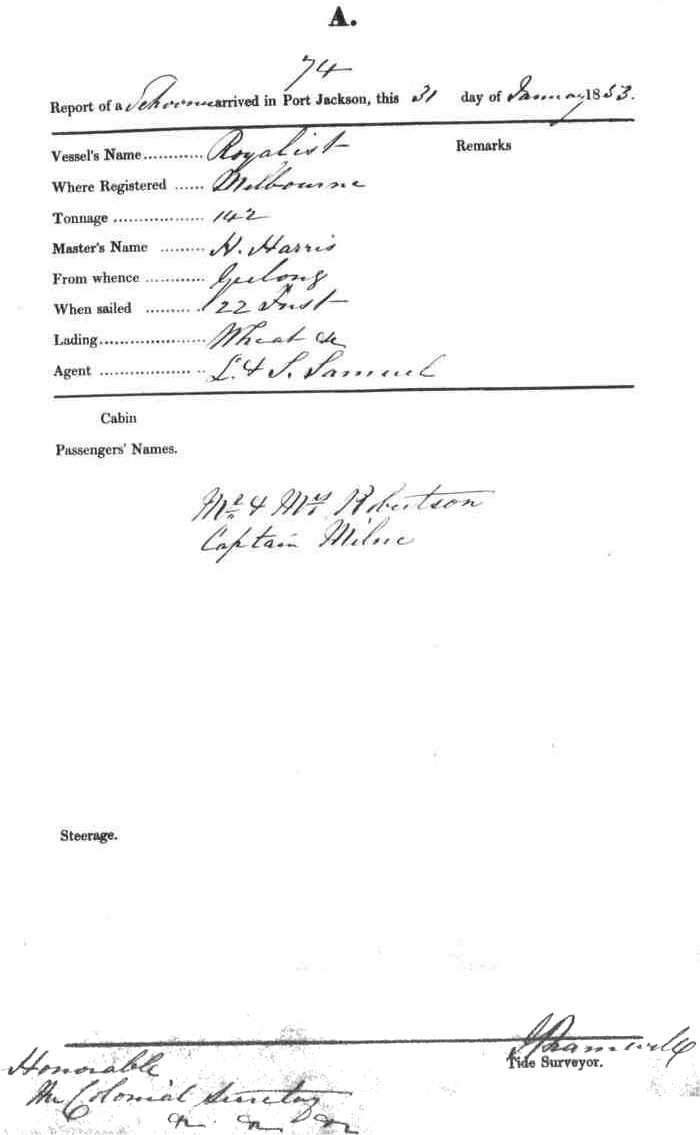 A.
74
Report of a Schooner arrived in Port Jackson, this 31 day of January 1853.
Vessel's Name ............ Royalist
Remarks
Where Registered ...... Melbourne
Tonnage .................. 142
Master's Name ......... H. Harris
From whence ............ Geelong
When sailed ......... 22 Inst
Lading ..................... Wheat &c
Agent .................. .. L. & S. Samuel
Cabin
Passengers' Names.
Mr & Mrs Robertson
Captain Milne
Steerage.
Tide Surveyor.
Honorable
The Colonial Secretary
&c &c &c